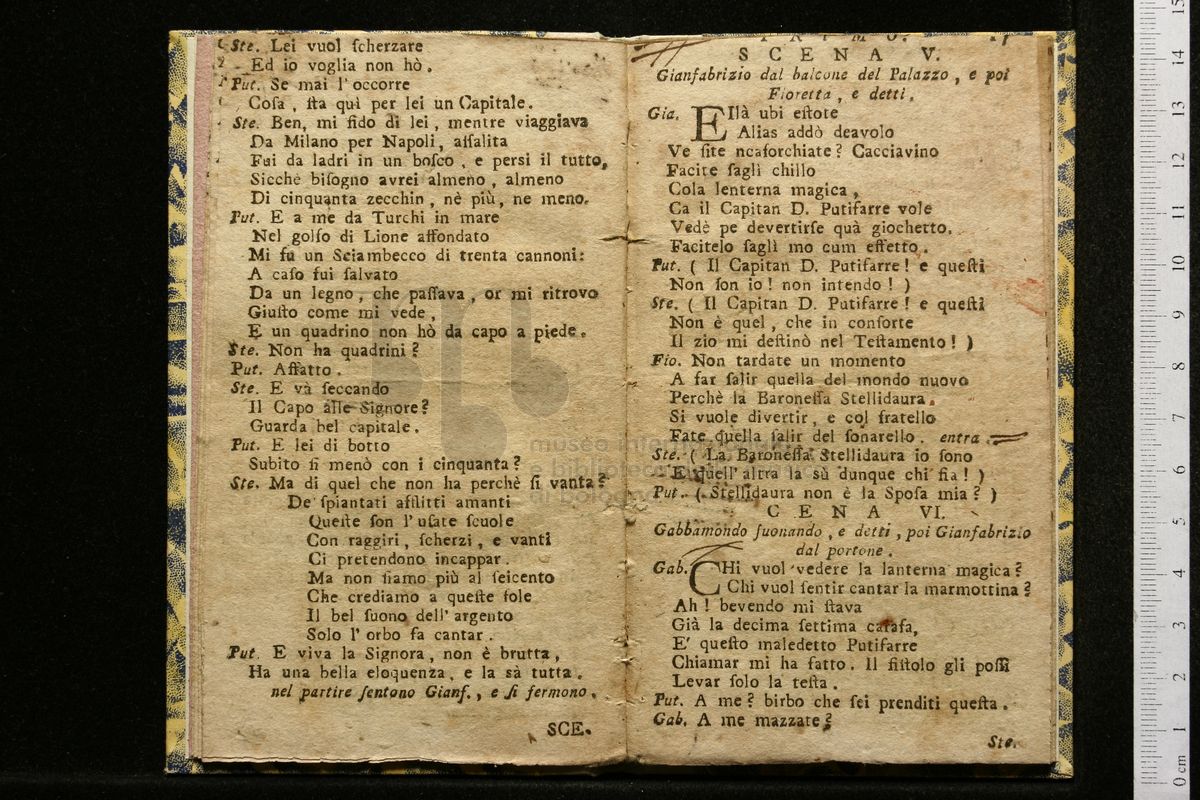 Ste. Lei vuol ſcherzare
Ed io voglia non hò.
Put. Se mai l'occorre
Coſa, ſta quì per lei un Capitale.
Ste. Ben, mi fido di lei, mentre viaggiava
Da Milano per Napoli, aſſalita
Fui da ladri in un boſco, e persi il tutto,
Sicchè biſogno avrei almeno, almeno
Di cinquanta zecchin, nè più, ne meno.
Put. E a me da Turchi in mare
Nel golfo di Lione affondato
Mi fu un Sciambecco di trenta cannoni:
A caſo fui ſalvato
Da un legno, che paſſava, or mi ritrovo
Giuſto come mi vede,
E un quadrino non hò da capo a piede.
Ste. Non ha quadrini?
Put. Affatto.
Ste. E và ſeccando
Il Capo alle Signore?
Guarda bel capitale.
Put. E lei di botto
Subito ſi menò con i cinquanta?
Ste. Ma di quel che non ha perchè ſi vanta?
De' ſpiantati afflitti amanti
Queſte ſon l'uſate ſcuole
Con raggiri, ſcherzi, e vanti
Ci pretendono incappar.
Ma non ſiamo più al ſeicento
Che crediamo a queſte fole
Il bel ſuono dell'argento
Solo l'orbo fa cantar.
Put. E viva la Signora, non è brutta,
Ha una bella eloquenza, e la sà tutta.
nel partire ſentono Gianf., e ſi fermono.
SCE.
SCENA V.
Gianfabrizio dal balcone del Palazzo, e poi
Fioretta, e detti.
Gia. Ellà ubi eſtote
Alias addò deavolo
Ve ſite ncaforchiate? Cacciavino
Facite ſaglì chillo
Cola lenterna magica,
Ca il Capitan D. Putifarre vole
Vedè pe devertirſe quà giochetto.
Facitelo ſaglì mo cum effetto.
Put. ( Il Capitan D. Putifarre! e queſti
Non ſon io! non intendo! )
Ste. ( Il Capitan D. Putifarre! e queſti
Non è quel, che in conſorte
Il zio mi deſtinò nel Teſtamento! )
Fio. Non tardate un momento
A far ſalir quella del mondo nuovo
Perchè la Baroneſſa Stellidaura.
Si vuole divertir, e col fratello
Fate quella ſalir del ſonarello. entra.
Ste. ( La Baroneſſa Stellidaura io ſono
E quell'altra la sù dunque chi ſia! )
Put. ( Stellidaura non è la Spoſa mia? )
CENA VI.
Gabbamondo ſuonando, e detti, poi Gianfabrizio
dal portone.
Gab. CHi vuol vedere la lanterna magica?
Chi vuol ſentir cantar la marmottina?
Ah! bevendo mi ſtava
Già la decima ſettima cafafa,
E' queſto maledetto Putifarre
Chiamar mi ha fatto. Il fiſtolo gli poſſi
Levar ſolo la teſta.
Put. A me? birbo che ſei prenditi queſta.
Gab. A me mazzate?
Ste.
museo inter
e bibliote
di Bologna